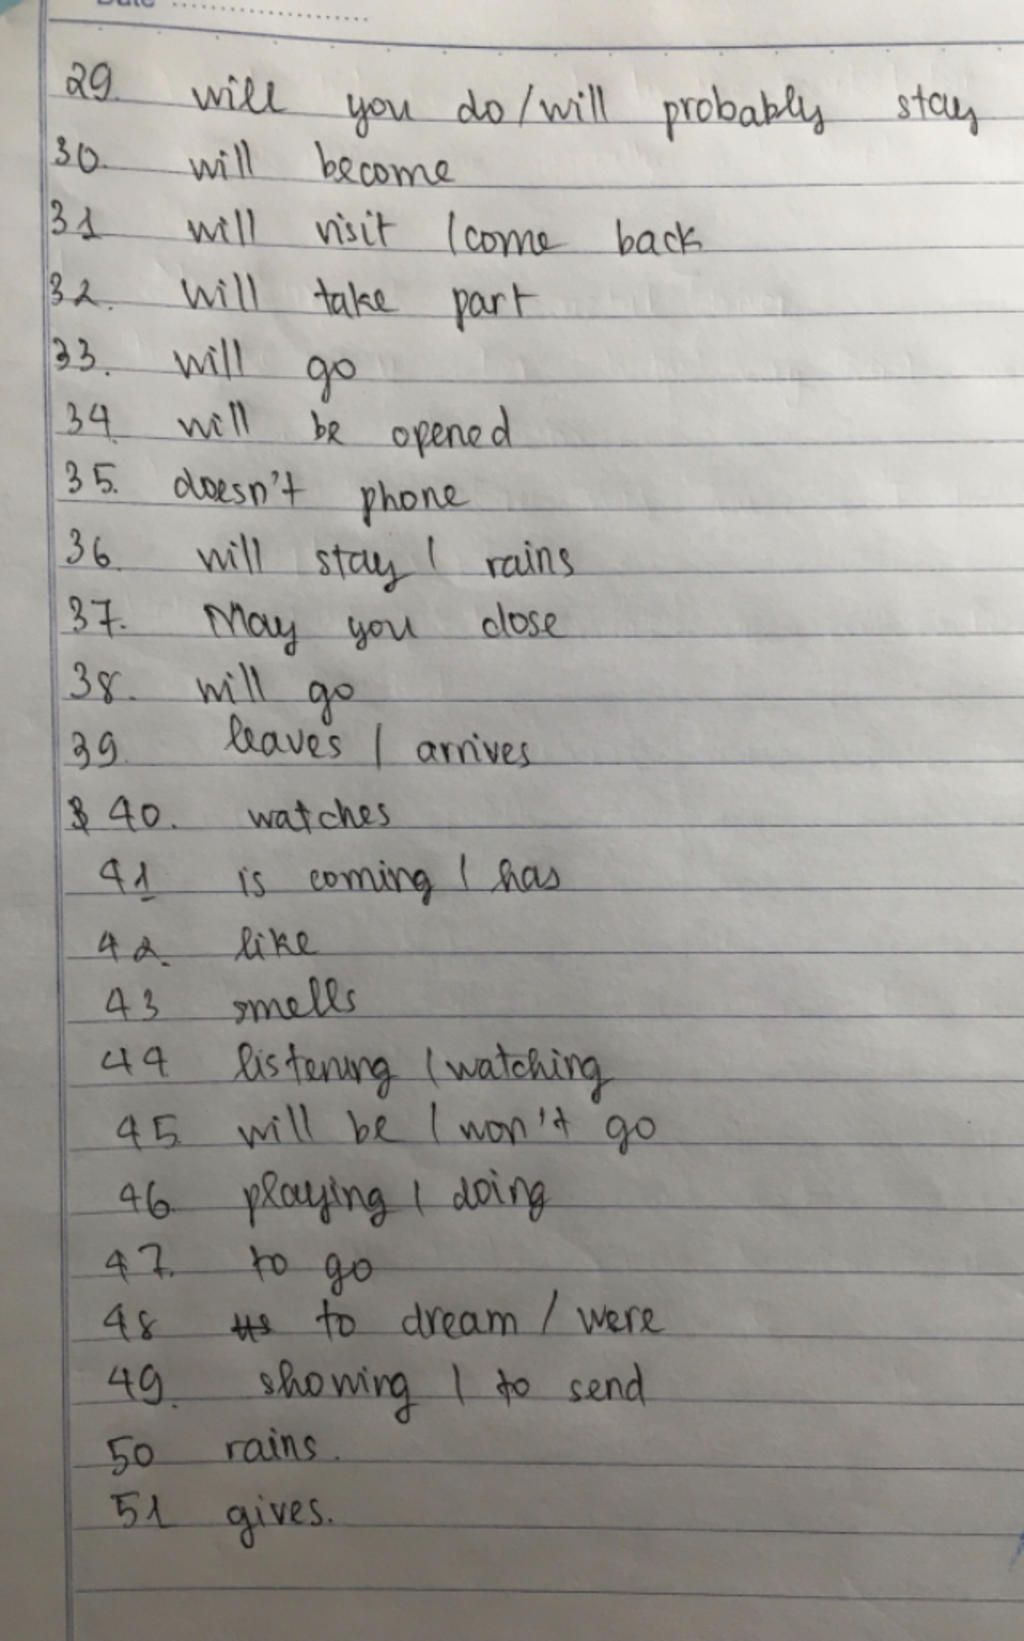 Date ....................
29. will you do/will probably stay
30. will become
31 will visit / come back
32. will take part
33. will go
34. will be opened
35. doesn't phone
36. will stay / rains
37. May you close
38. will go
39. leaves / arrives
40. watches
41 is coming / has
42. like
43 smells
44 listening / watching
45 will be / won't go
46 playing / doing
47. to go
48 to dream / were
49. showing / to send
50 rains.
51 gives.